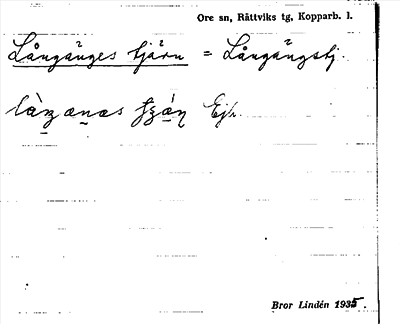 Ore sn, Rättviks tg, Kopparb. l.
Långånges tjärn = Långångstj.
Ejr.
Bror Lindén 1935.